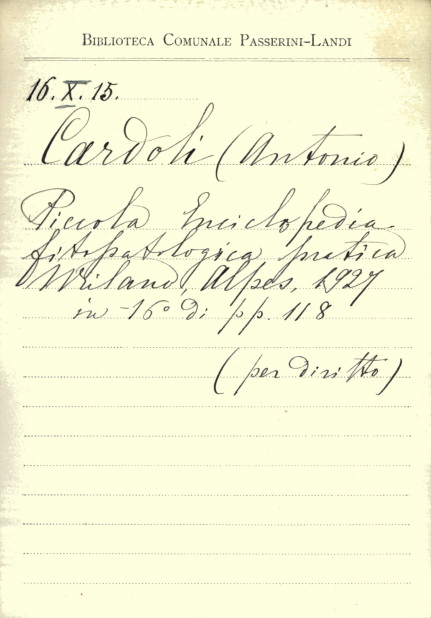 BIBLIOTECA COMUNALE PASSERINI-LANDI
16.X.15.
Cardoli (Antonio)
Piccola Enciclopedia
fitopatologica pratica
Milano, Alpes, 1927
in -16° di pp. 118
(per diritto)